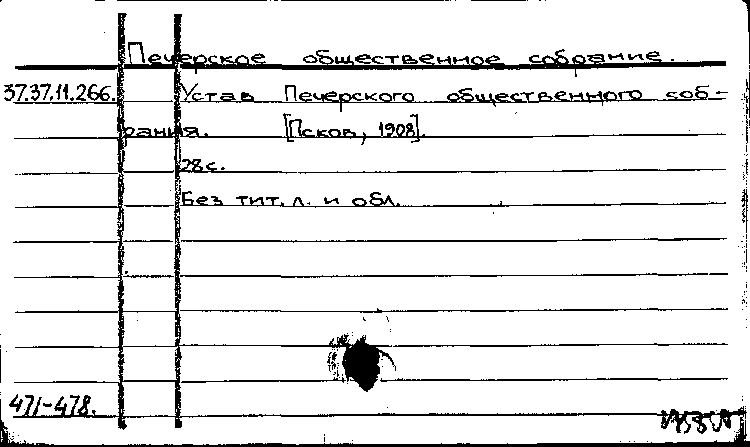 Печерское общественное собрание.
37.37.11.266. Устав Печерского общественного соб-
рания. [Псков, 1908].
28 с.
Без тит. л. и обл.
471-478.